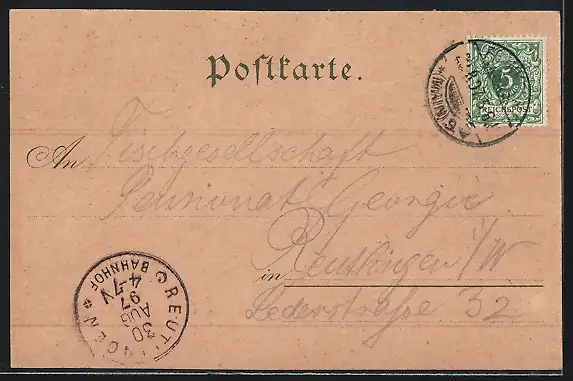 Postkarte.
5
REICHSPOST
An Tischgesellschaft
Pensionat Georgii
in Reutlingen i/W
Lederstraße 32
REUTLINGEN
BAHNHOF
4-7N
97
AUG
30